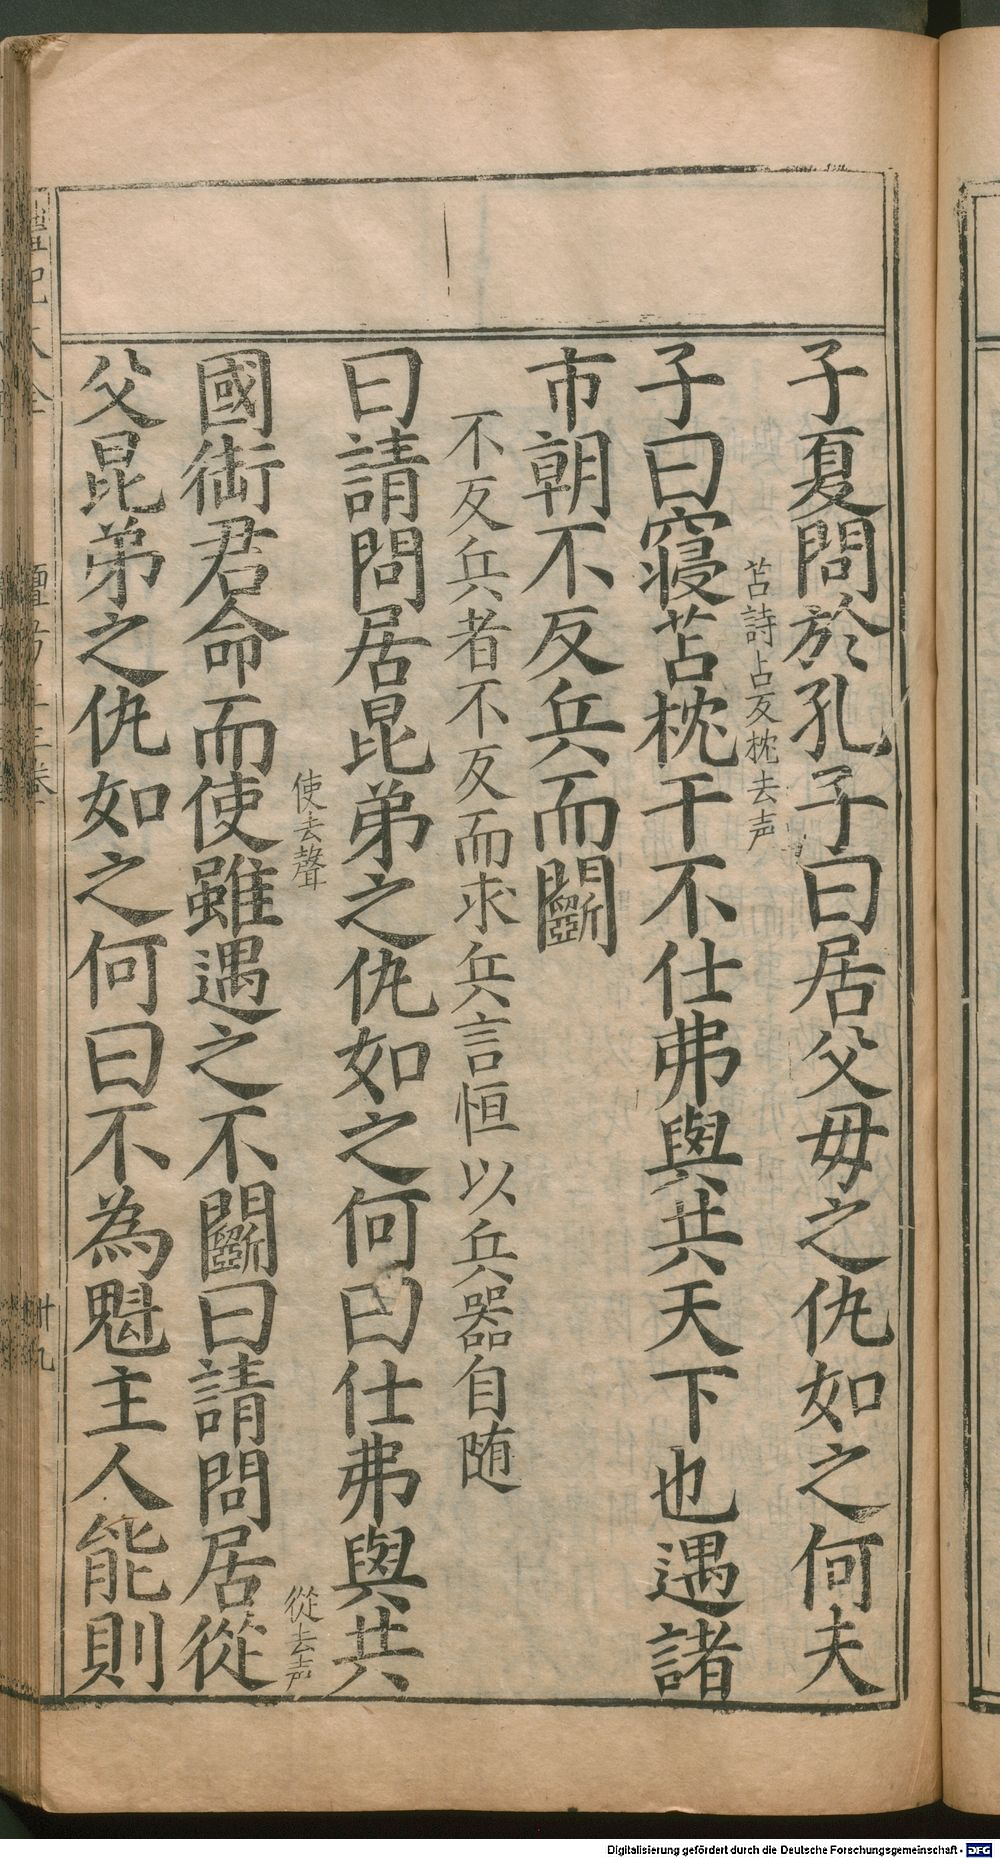 子夏問於孔子曰居父毋之仇如之何夫
苫詩占反枕去声
子曰寢苫枕干不仕弗與共天下也遇諸
市朝不反兵而鬬
不反兵者不反而求兵言恒以兵器自随
曰請問居昆弟之仇如之何曰仕弗與共
使去聲
從去声
國銜君命而使雖遇之不鬬曰請問居從
父昆弟之仇如之何曰不為魁主人能則
禮記大全
檀弓上三卷
廿九
Digitalisierung gefördert durch die Deutsche Forschungsgemeinschaft - DFG